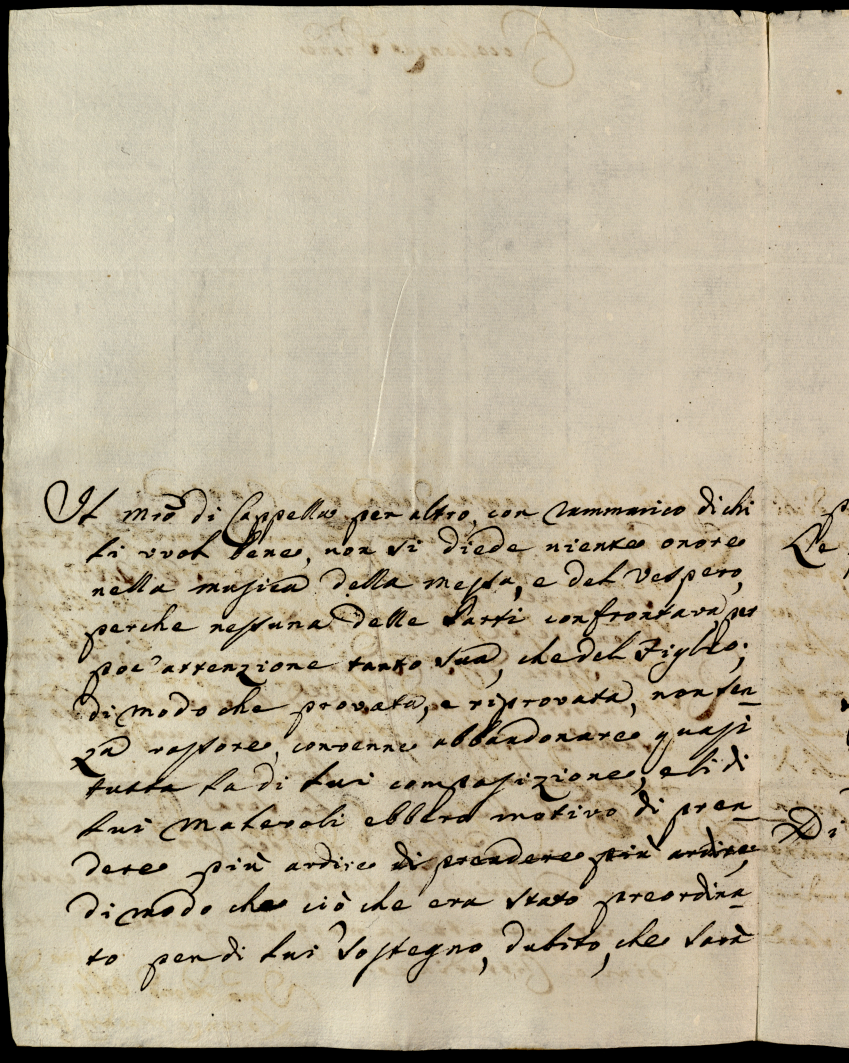 Il mrõ di Cappella per altro, con rammarico di chi
li vuol bene, non si diede niente onore
nella musica della messa, e del Vespero,
perche nessuna delle Parti confrontava, per
poc'attenzione tanto sua, che del Figlio;
di modo che provata, e riprovata, non sen=
za rossore, convenne abbandonare quasi
tutta la di lui composizione, e li di
lui malevoli ebbero motivo di pren=
dere più ardire di prendere più ardire,
di modo che ciò che era stato preordina=
to per di lui sostegno, dubito, che sarà
Le
Di